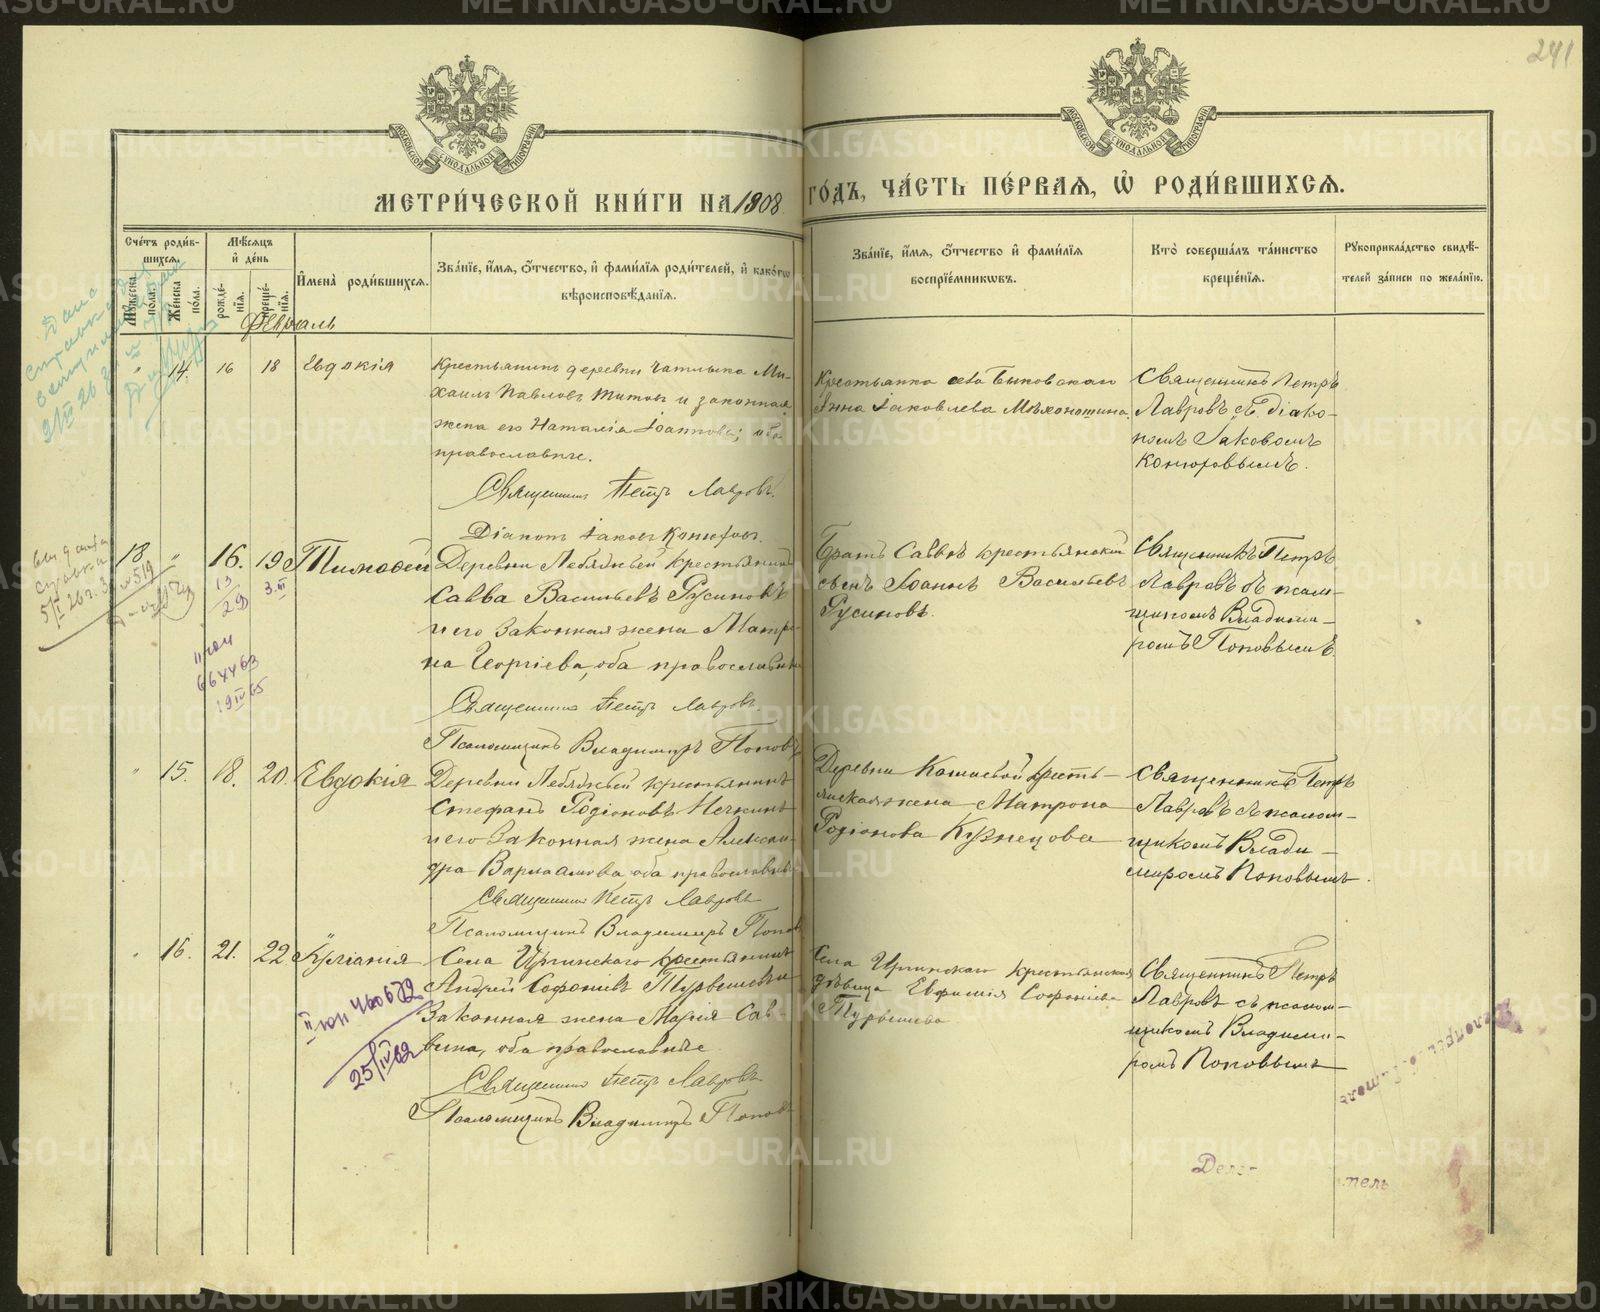 241
МОСКОВСКОЙ СѴНОДАЛЬНОЙ ТИПОГРАФІИ
МОСКОВСКОЙ СѴНОДАЛЬНОЙ ТИПОГРАФІИ
МЕТРИ́ЧЕСКОЙ КНИ́ГИ НА 1908
ГО́ДЪ, ЧА́СТЬ ПЕ́РВАЯ, Ѡ҆ РОДИ́ВШИХСЯ.
Сче́тъ роди́в-
шихся.
Мѣ́сяцъ
и҆ де́нь
Мꙋ́жеска по́ла.
Же́нска по́ла.
рожде́-
нїя.
креще́-
нїя.
И҆мена̀ роди́вшихся.
Зва́нїе, и҆́мя, ѻ҆́тчество, и҆ фами́лїя роди́телей, и҆ како́гѡ
вѣроисповѣ́данїя.
Зва́нїе, и҆́мя, ѻ҆́тчество и҆ фами́лїя
воспрїе́мникѡвъ.
Кто̀ соверша́лъ та́инство
креще́нїя.
Рꙋкоприкла́дство свидѣ́-
телей за́писи по жела́нїю.
Февраль
" 14. 16 18 Евдокія
Крестьянинъ деревни Чатлыка Ми-
хаилъ Павловъ Титовъ и законная
жена его Наталія Іоаннова; оба
православные.
Священникъ Петръ Лавровъ.
Діаконъ Іаковъ
Крестьянка села Быковскаго
Анна Іаковлева
Священникъ Петръ
Лавровъ с діако-
номъ Іаковомъ
18 " 16. 19 Тимофей
Деревни Лебяжьей крестьянинъ
Савва Васильевъ Русиновъ
и его законная жена Матро-
на Георгіева, оба православные
Священникъ Петръ Лавровъ.
Псаломщикъ Владимиръ Поповъ
Братъ Саввы крестьянскій
сынъ Іоаннъ Васильевъ
Русиновъ.
Священникъ Петръ
Лавровъ съ псалом-
щикомъ Владими-
ромъ Поповымъ.
" 15. 18. 20. Евдокія
Деревни Лебяжьей крестьянинъ
Стефанъ Родіоновъ
и его законная жена Алексан-
дра Варлаамова оба православные
Священникъ Петръ Лавровъ
Псаломщикъ Владимиръ Поповъ
Деревни крестья-
нская жена Матрона
Родіонова Кузнецова
Священникъ Петръ
Лавровъ съ псалом-
щикомъ Влади-
миромъ Поповымъ.
" 16. 21. 22 Іуліанія
Села Иргинскаго крестьянинъ
Андрей Софоніевъ Турышевъ и
законная жена Марія Сав-
вина, оба православные
Священникъ Петръ Лавровъ
Псаломщикъ Владимиръ Поповъ
Села Иргинскаго крестьянская
дѣвица Евфимія Софоніева
Турышева
Священникъ Петръ
Лавровъ съ псалом-
щикомъ Владими-
ромъ Поповымъ
25/IV 62
METRIKI.GASO-URAL.RU